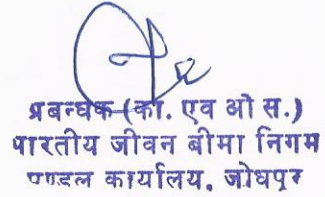 प्रबन्धक (का. एव ओ स.)
भारतीय जीवन बीमा निगम
मण्डल कार्यालय, जोधपुर